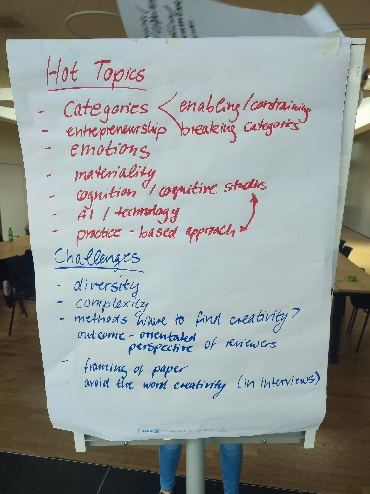 Hot Topics
- categories < enabling/constraining
breaking categories
- entrepreneurship
- emotions
- materiality
- cognition / cognitive studies
- AI / technology
- practice - based approach
Challenges
- diversity
- complexity
- methods where to find creativity?
outcome - orientated
perspective of reviewers
- framing of paper
- avoid the word creativity (in interviews)